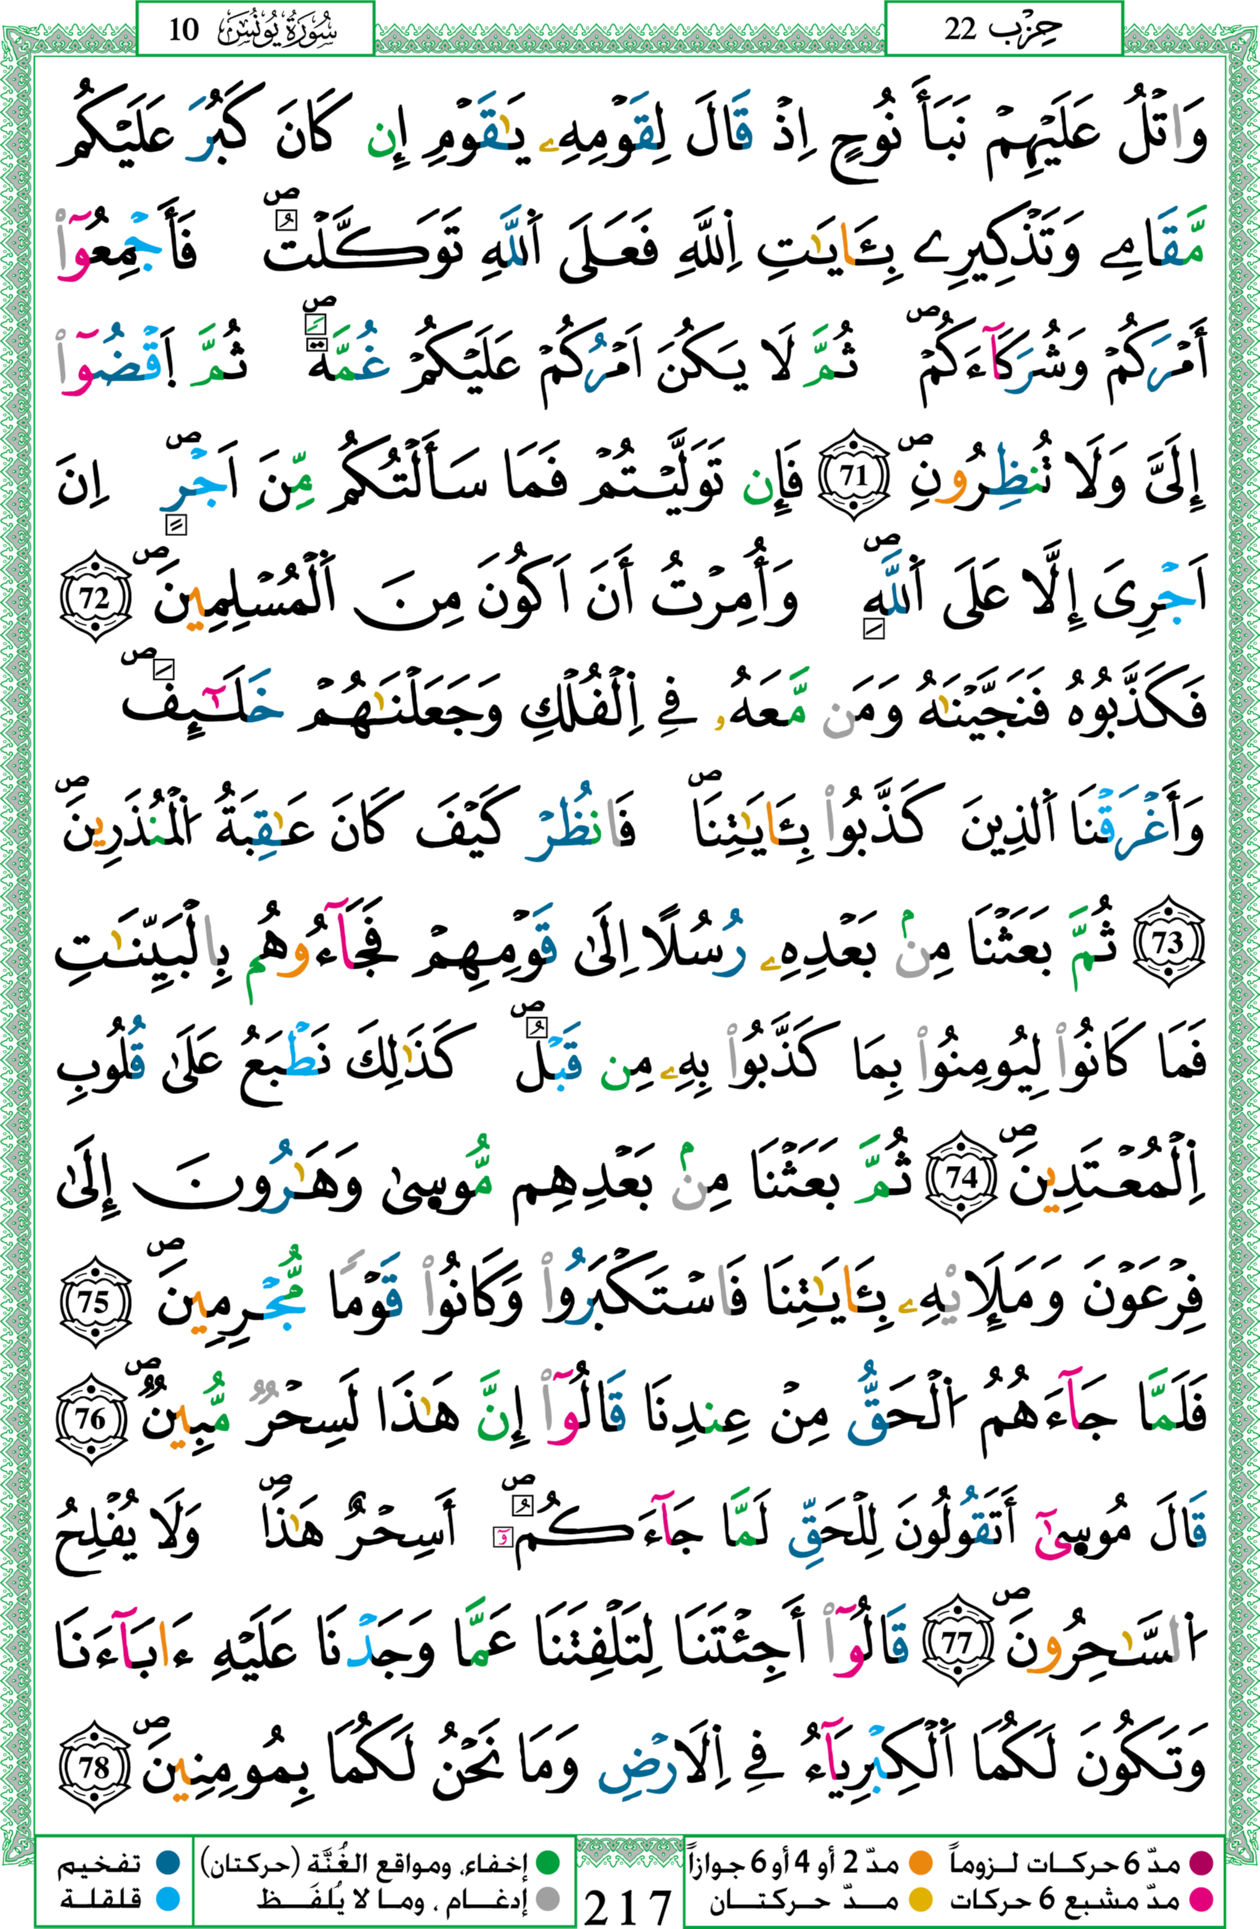 حِزْب 22
سُورَةُ يُونُسَ 10
وَاتْلُ عَلَيْهِمْ نَبَأَ نُوحٍ اِذْ قَالَ لِقَوْمِهِۦ يَٰقَوْمِ إِن كَانَ كَبُرَ عَلَيْكُم
مَّقَامِے وَتَذْكِيرِے بِـَٔايَٰتِ اِ۬للَّهِ فَعَلَى اَ۬للَّهِ تَوَكَّلْتُ ص فَأَجْمِعُوٓاْ
أَمْرَكُمْ وَشُرَكَآءَكُمْ ص ثُمَّ لَا يَكُنَ اَمْرُكُمْ عَلَيْكُمْ غُمَّةً ص ثُمَّ اَ۪قْضُوٓاْ
إِلَيَّ وَلَا تُنظِرُونِ ص 71 فَإِن تَوَلَّيْتُمْ فَمَا سَأَلْتُكُم مِّنَ اَجْرٍ ص اِنَ
اَجْرِيَ إِلَّا عَلَى اَ۬للَّهِ ص وَأُمِرْتُ أَنَ اَكُونَ مِنَ اَ۬لْمُسْلِمِينَ ص 72
فَكَذَّبُوهُ فَنَجَّيْنَٰهُ وَمَن مَّعَهُۥ فِے اِ۬لْفُلْكِ وَجَعَلْنَٰهُمْ خَلَٰٓئِفَ ص
وَأَغْرَقْنَا اَ۬لذِينَ كَذَّبُواْ بِـَٔايَٰتِنَا ص فَانظُرْ كَيْفَ كَانَ عَٰقِبَةُ اُ۬لْمُنذَرِينَ ص
73 ثُمَّ بَعَثْنَا مِنۢ بَعْدِهِۦ رُسُلًا اِلَىٰ قَوْمِهِمْ فَجَآءُوهُم بِالْبَيِّنَٰتِ
فَمَا كَانُواْ لِيُومِنُواْ بِمَا كَذَّبُواْ بِهِۦ مِن قَبْلُ ص كَذَٰلِكَ نَطْبَعُ عَلَىٰ قُلُوبِ
اِ۬لْمُعْتَدِينَ ص 74 ثُمَّ بَعَثْنَا مِنۢ بَعْدِهِم مُّوسِىٰ وَهَٰرُونَ إِلَىٰ
فِرْعَوْنَ وَمَلَإِيْهِۦ بِـَٔايَٰتِنَا فَاسْتَكْبَرُواْ وَكَانُواْ قَوْمًا مُّجْرِمِينَ ص 75
فَلَمَّا جَآءَهُمُ اُ۬لْحَقُّ مِنْ عِندِنَا قَالُوٓاْ إِنَّ هَٰذَا لَسِحْرٌ مُّبِينٌ ص 76
قَالَ مُوسِىٰٓ أَتَقُولُونَ لِلْحَقِّ لَمَّا جَآءَكُمُ ص أَسِحْرٌ هَٰذَا ص وَلَا يُفْلِحُ
اُ۬لسَّٰحِرُونَ ص 77 قَالُوٓاْ أَجِئْتَنَا لِتَلْفِتَنَا عَمَّا وَجَدْنَا عَلَيْهِ ءَابَآءَنَا
وَتَكُونَ لَكُمَا اَ۬لْكِبْرِيَآءُ فِے اِ۬لَارْضِ وَمَا نَحْنُ لَكُمَا بِمُومِنِينَ ص 78
مدّ 6 حركات لـزومـاً مدّ 2 أو 4 أو 6 جوازاً
مدّ مشبع 6 حركات مـدّ حـركتـان
217
إخفاء، ومواقع الغُنَّة (حركتان) تفخيم
إدغـام ، ومـا لا يُلفَـظ قلقلة